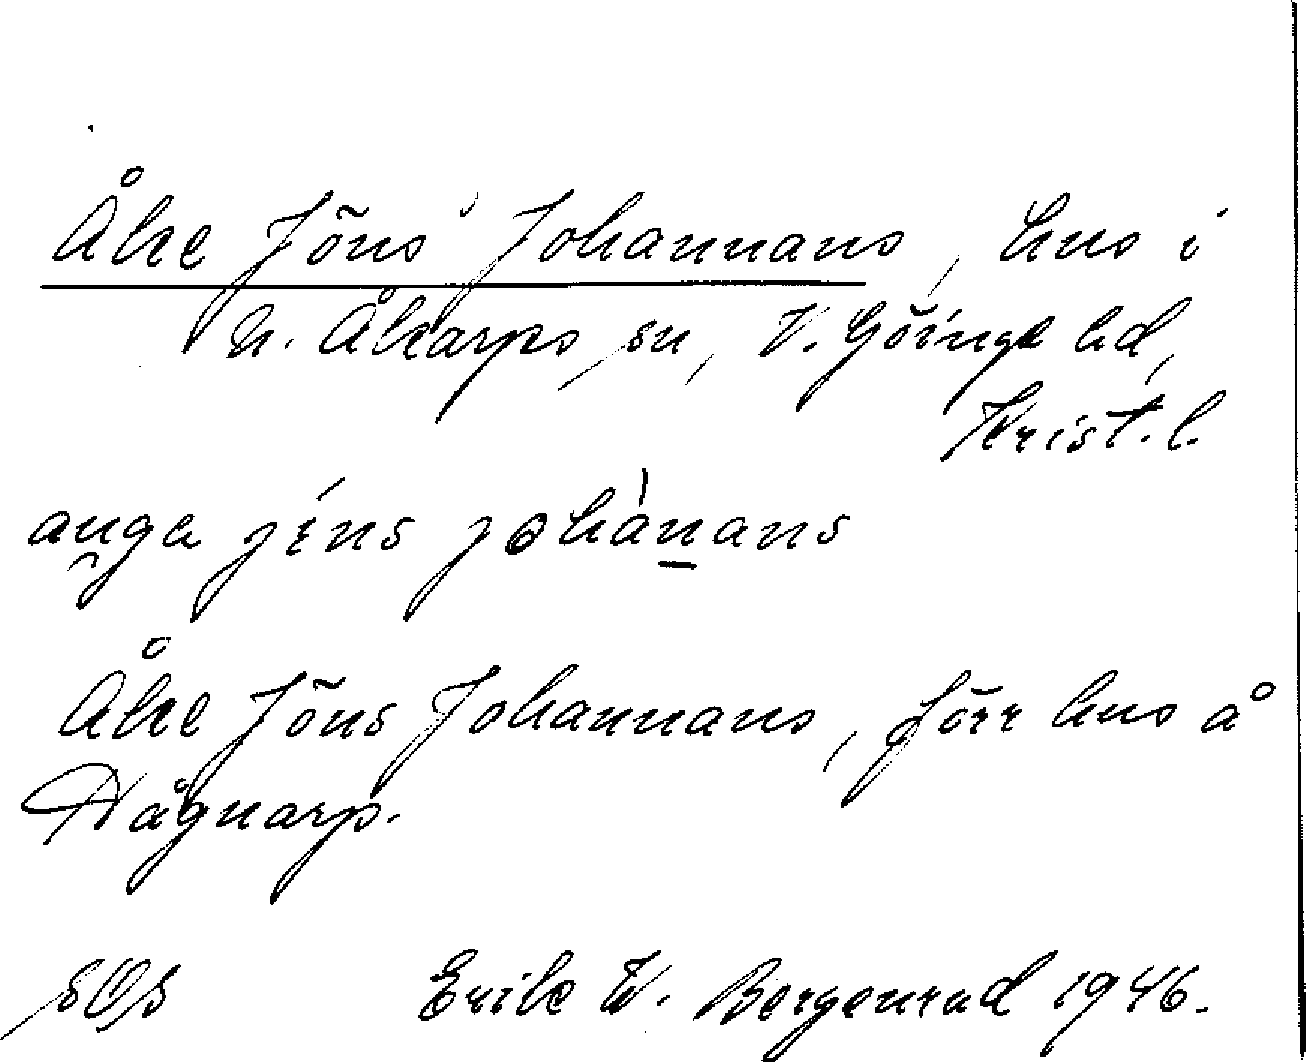 Åke Jöns' Johannans, hus i
N. Åkarps sn, V. Göinge hd,
Krist. l.
auga jéns johànans
Åke Jöns Johannans, förr hus å
Hågnarp.
Erik W. Bergenrud 1946.